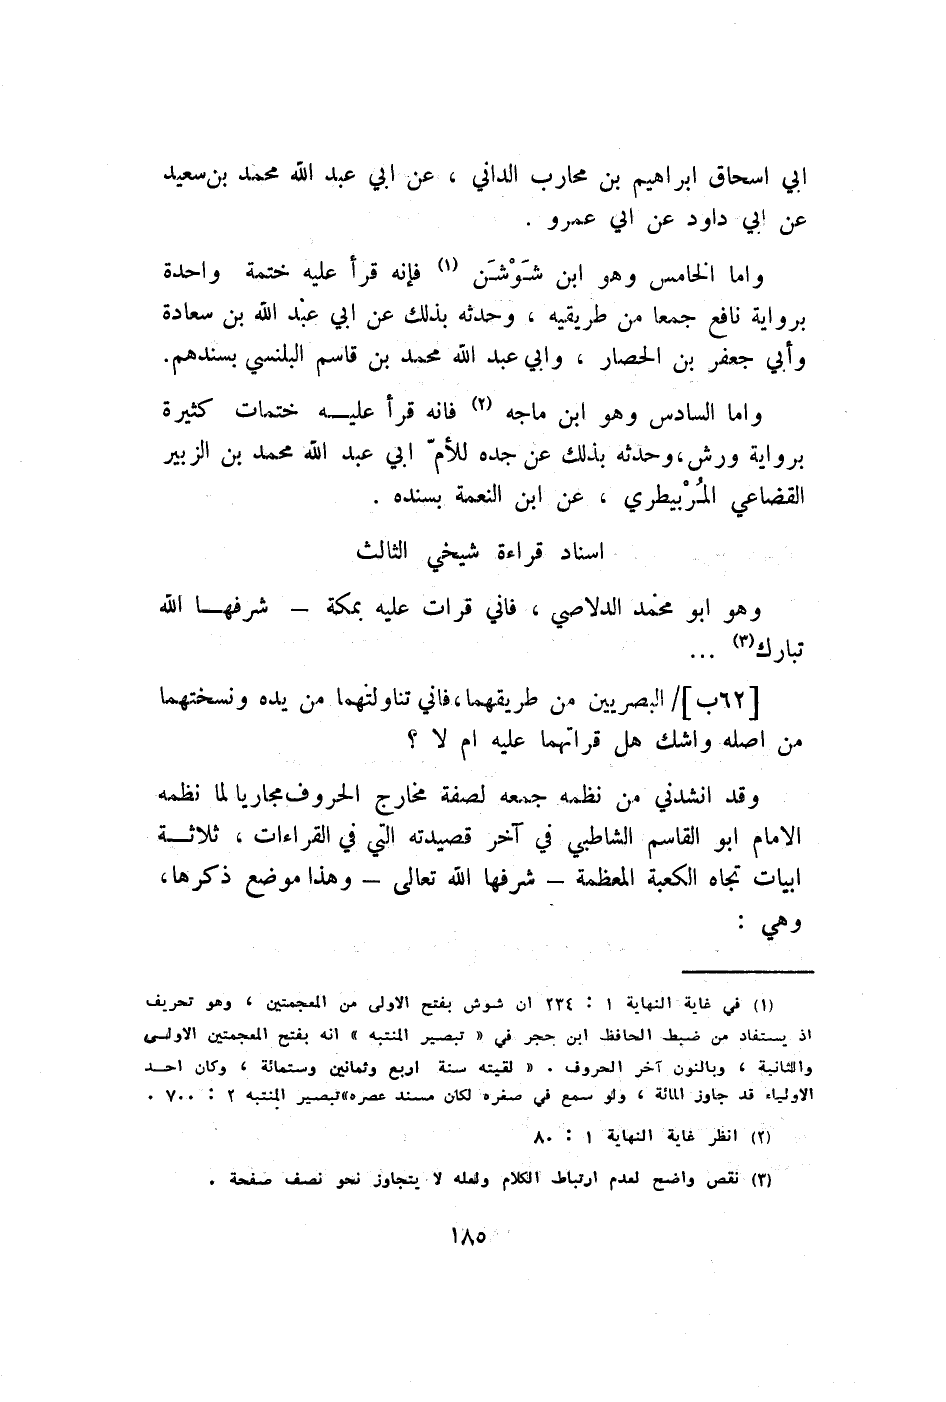 ابي اسحاق ابراهيم بن محارب الداني ، عن ابي عبد الله محمد بن سعيد
عن ابي داود عن ابي عمرو .
واما الخامس وهو ابن شَوْشَن (١) فإنه قرأ عليه ختمة واحدة
برواية نافع جمعا من طريقيه ، وحدثه بذلك عن ابي عبد الله بن سعادة
وأبي جعفر بن الحصار ، وابي عبد الله محمد بن قاسم البلنسي بسندهم.
واما السادس وهو ابن ماجه (٢) فانه قرأ عليــه ختمات كثيرة
برواية ورش، وحدثه بذلك عن جده للأمّ ابي عبد الله محمد بن الزبير
القضاعي المُرْبيطري ، عن ابن النعمة بسنده .
اسناد قراءة شيخي الثالث
وهو ابو محمد الدلاصي ، فاني قرات عليه بمكة – شرفهــا الله
تبارك(٣) ...
[٦٢ب]/ البصريين من طريقهما، فاني تناولتهما من يده ونسختهما
من اصله واشك هل قراتهما عليه ام لا ؟
وقد انشدني من نظمه جمعه لصفة مخارج الحروف مجاريا لما نظمه
الامام ابو القاسم الشاطبي في آخر قصيدته التي في القراءات ، ثلاثــة
ابيات تجاه الكعبة المعظمة – شرفها الله تعالى – وهذا موضع ذكرها،
وهي :
(١) في غاية النهاية ١ : ٢٣٤ ان شوش بفتح الاولى من المعجمتين ، وهو تحريف
اذ يستفاد من ضبط الحافظ ابن حجر في « تبصير المنتبه » انه بفتح المعجمتين الاولــى
والثانية ، وبالنون آخر الحروف . « لقيته سنة اربع وثمانين وستمائة ، وكان احــد
الاولياء قد جاوز المائة ، ولو سمع في صغره لكان مسند عصره» تبصير المنتبه ٢ : ٧٠٠ .
(٢) انظر غاية النهاية ١ : ٨٠
(٣) نقص واضح لعدم ارتباط الكلام ولعله لا يتجاوز نحو نصف صفحة .
١٨٥